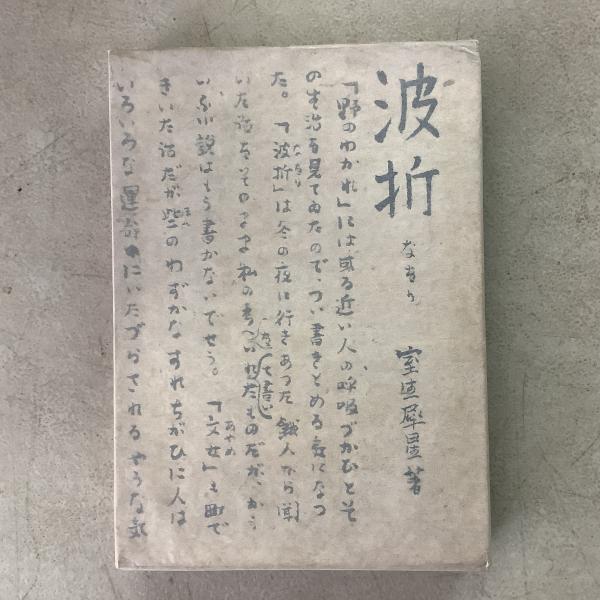 波折
なをり
室生犀星著
「野のわかれ」には或る近い人の呼吸づかひとそ
の生活を見てゐたので、つい書きとめる気になつ
た。「波折」は冬の夜に行きあつた餓人から聞
なをり
いた話をそのまま私の考へ
いれたものだが、かう
て書き
いふ小説はもう書かないでせう。「文女」も町で
あやめ
きいた話だが些のわずかなすれちがひに人は
いろいろな運命にいたづらされるやうな気